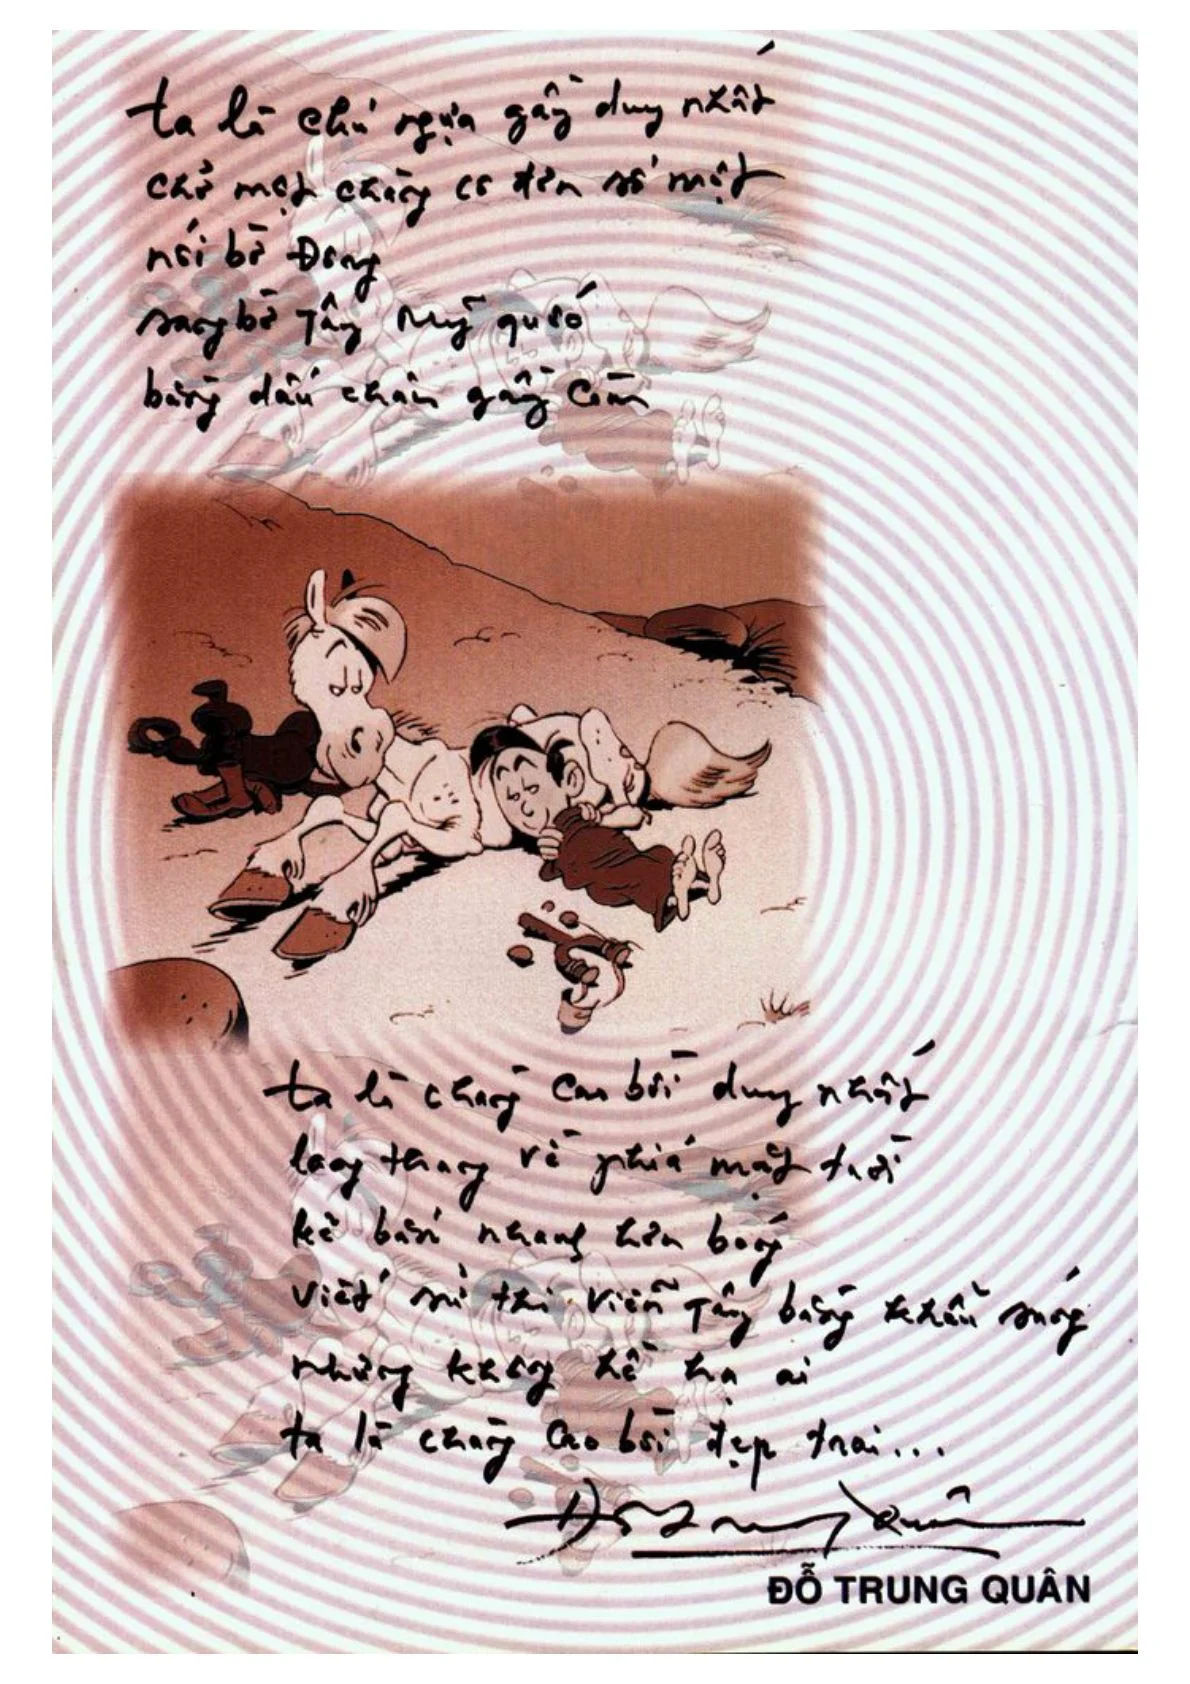 ta là chú ngựa gầy duy nhất
chở một chàng có tên số một
nối bờ Đông
sang bờ Tây Mỹ quốc
bằng dấu chân gầy còm
ta là chàng cao bồi duy nhất
lang thang về phía mặt trời
kẻ bắn nhanh hơn bóng
viết sử thi Viễn Tây bằng khẩu súng
nhưng không hề hạ ai
ta là chàng cao bồi đẹp trai...
Đỗ Trung Quân
ĐỖ TRUNG QUÂN